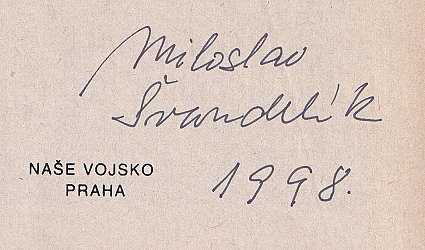 Miloslav
Švandrlík
NAŠE VOJSKO
PRAHA
1998.